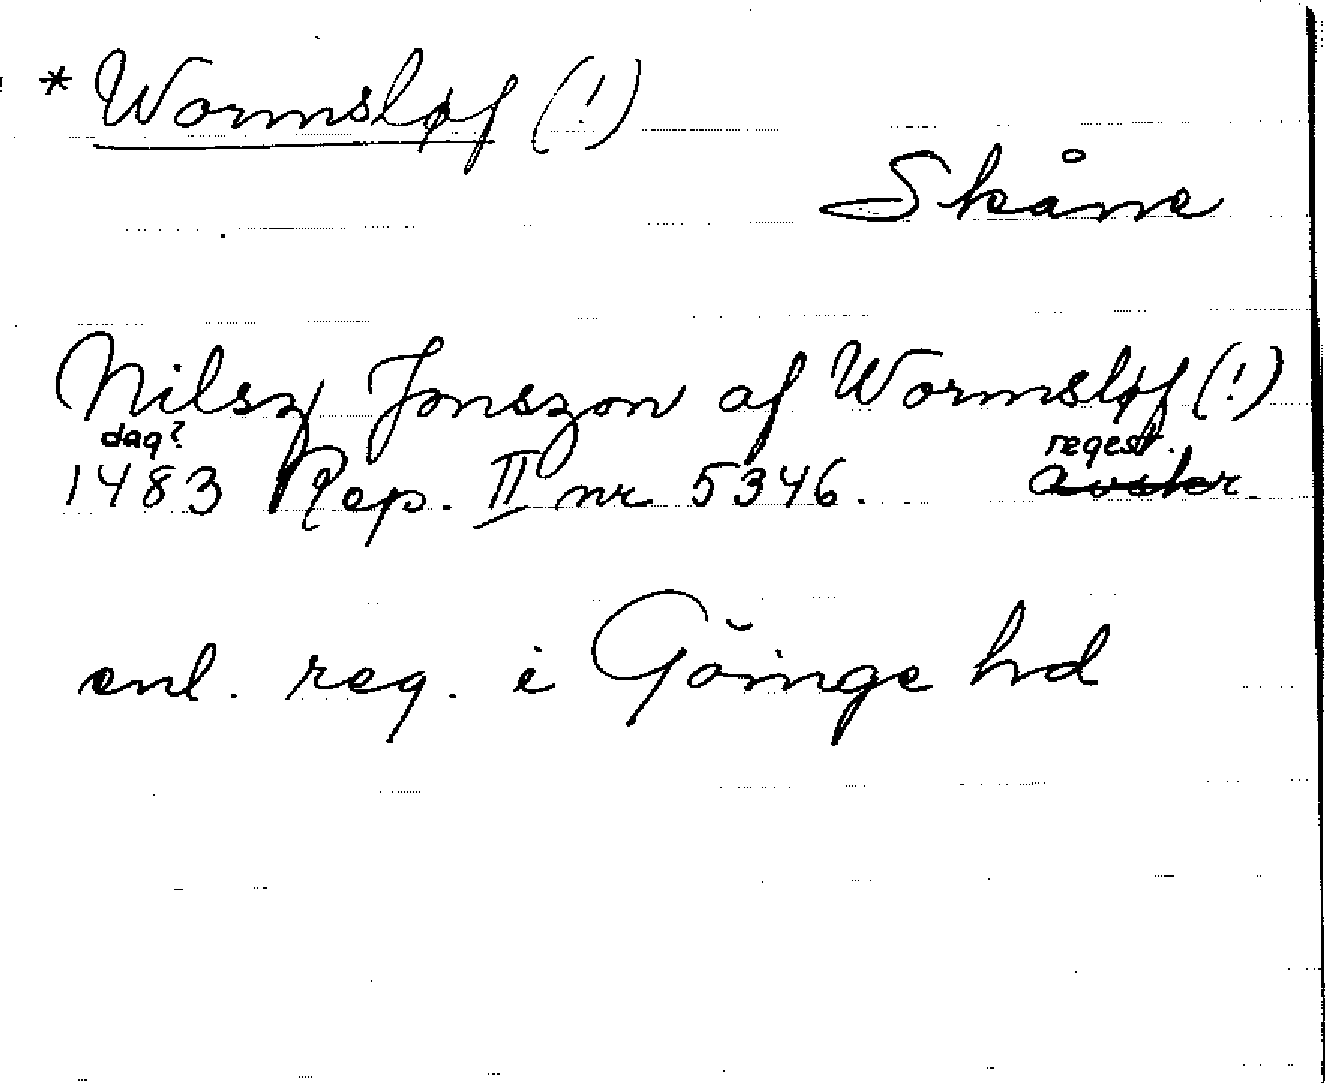 * Wormsløf (!)
Skåne
Nilsz Jonszon af Wormsløf (!)
dag? regest.
1483 Rep. II nr 5346. avskr.
enl. reg. i Göinge hd